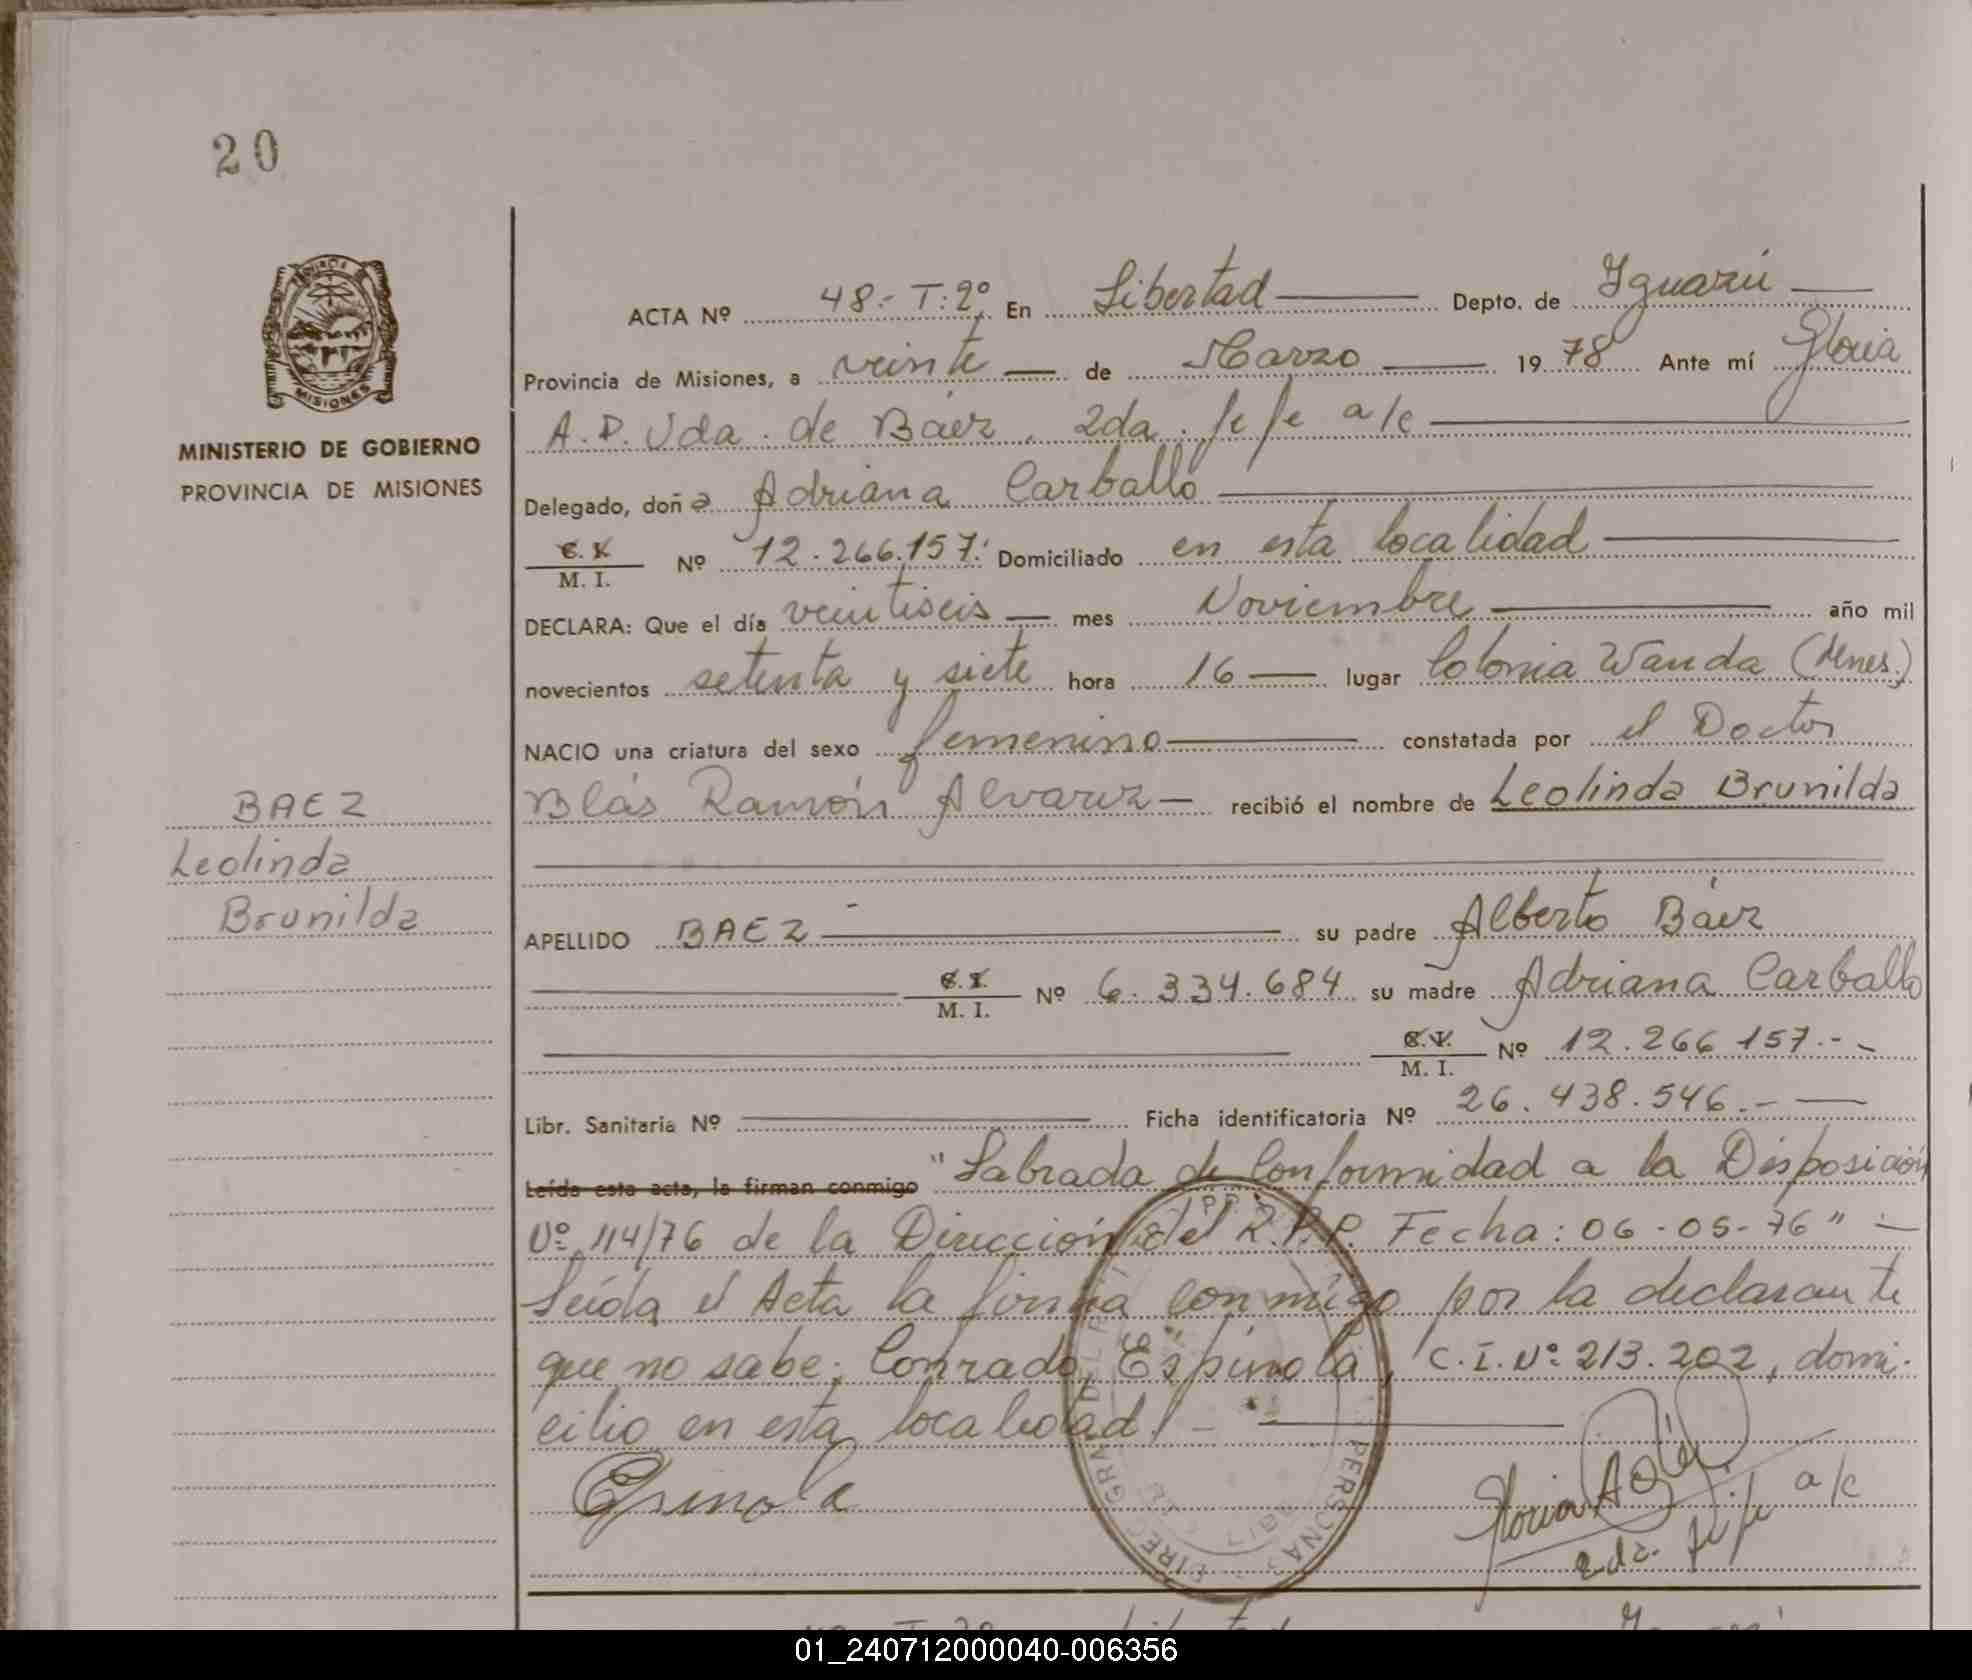 20
MISIONES
MINISTERIO DE GOBIERNO
PROVINCIA DE MISIONES
BAEZ
Leolinda
Brunilda
ACTA Nº 48.- T: 2º En Libertad Depto. de Iguazú
Provincia de Misiones, a veinte de Marzo 1978 Ante mí Gloria
A. D. Vda. de Báez, 2da. Jefe a/c
Delegado, doña Adriana Carballo
C. I.
M. I. Nº 12.266.157.- Domiciliado en esta localidad
DECLARA: Que el día veintiseis mes Noviembre año mil
novecientos setenta y siete hora 16 lugar Colonia Wanda (Mnes.)
NACIO una criatura del sexo femenino constatada por el Doctor
Blás Ramón Alvarez recibió el nombre de Leolinda Brunilda
APELLIDO BAEZ su padre Alberto Báez
C. I.
M. I. Nº 6.334.684 su madre Adriana Carballo
C. I.
M. I. Nº 12.266.157.-
Libr. Sanitaria Nº Ficha identificatoria Nº 26.438.546.-
Leída esta acta, la firman conmigo "Labrada de Conformidad a la Disposición
Nº 114/76 de la Dirección del R.P.P. Fecha: 06-05-76"
Leída el Acta la firma conmigo por la declarante
que no sabe; Conrado Espínola, C.I. Nº 213.202, domi-
cilio en esta localidad.-
Espinola
Gloria A D
2da. Jefe a/c
PERSONAS
01_240712000040-006356